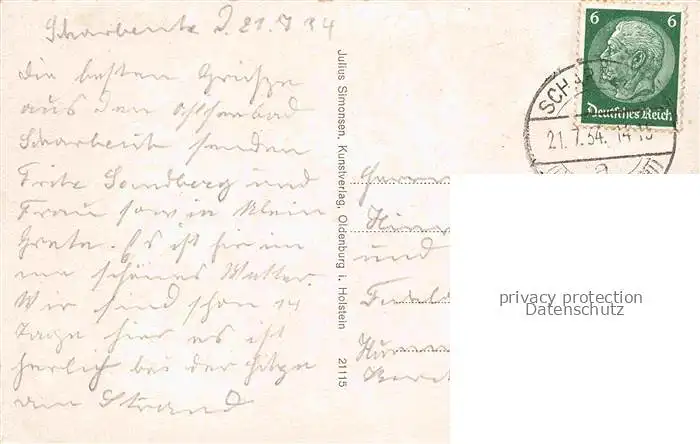 Scharbeutz D. 21.7.34
Die besten Grüsze
aus dem Ostseebad
Scharbeutz senden
Fritz Sandberg und
Frau sowie klein
Grete. Es ist hir im
me schönes Wetter.
Wir sind schon 14
Tage hier es ist
herlich bei der Hitze
am Strand
Julius Simonsen, Kunstverlag, Oldenburg i. Holstein 21115
6 6
Deutsches Reich
SCH
21.7.34. 14-15
a
Herrn
und
privacy protection
Datenschutz